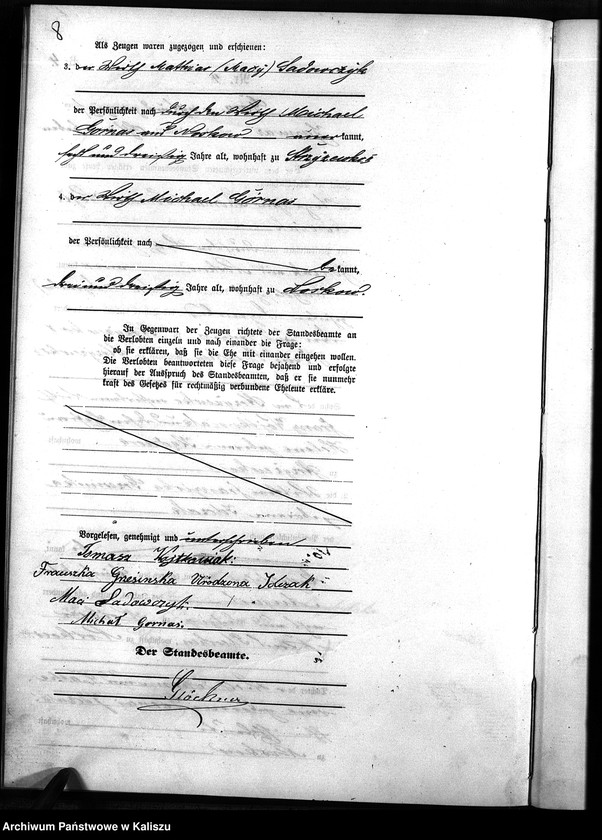 8
Als Zeugen waren zugezogen und erschienen:
3. der Wirth Mathias (Macij) Sadowczyk
der Persönlichkeit nach durch den Wirth Michael
Górnas aus kannt,
sechs und dreißig Jahre alt, wohnhaft zu
4. der Wirth Michael Górnas
der Persönlichkeit nach
be kannt,
drei und dreißig Jahre alt, wohnhaft zu
In Gegenwart der Zeugen richtete der Standesbeamte an
die Verlobten einzeln und nach einander die Frage:
ob sie erklären, daß sie die Ehe mit einander eingehen wollen.
Die Verlobten beantworteten diese Frage bejahend und erfolgte
hierauf der Ausspruch des Standesbeamten, daß er sie nunmehr
kraft des Gesetzes für rechtmäßig verbundene Eheleute erkläre.
Vorgelesen, genehmigt und unterschrieben
Tomasz
Frauzka Gresinska Urodzona Idczak
Maci Sadowczyk.
Michał Gornas.
Der Standesbeamte.
Glöckner
Archiwum Państwowe w Kaliszu